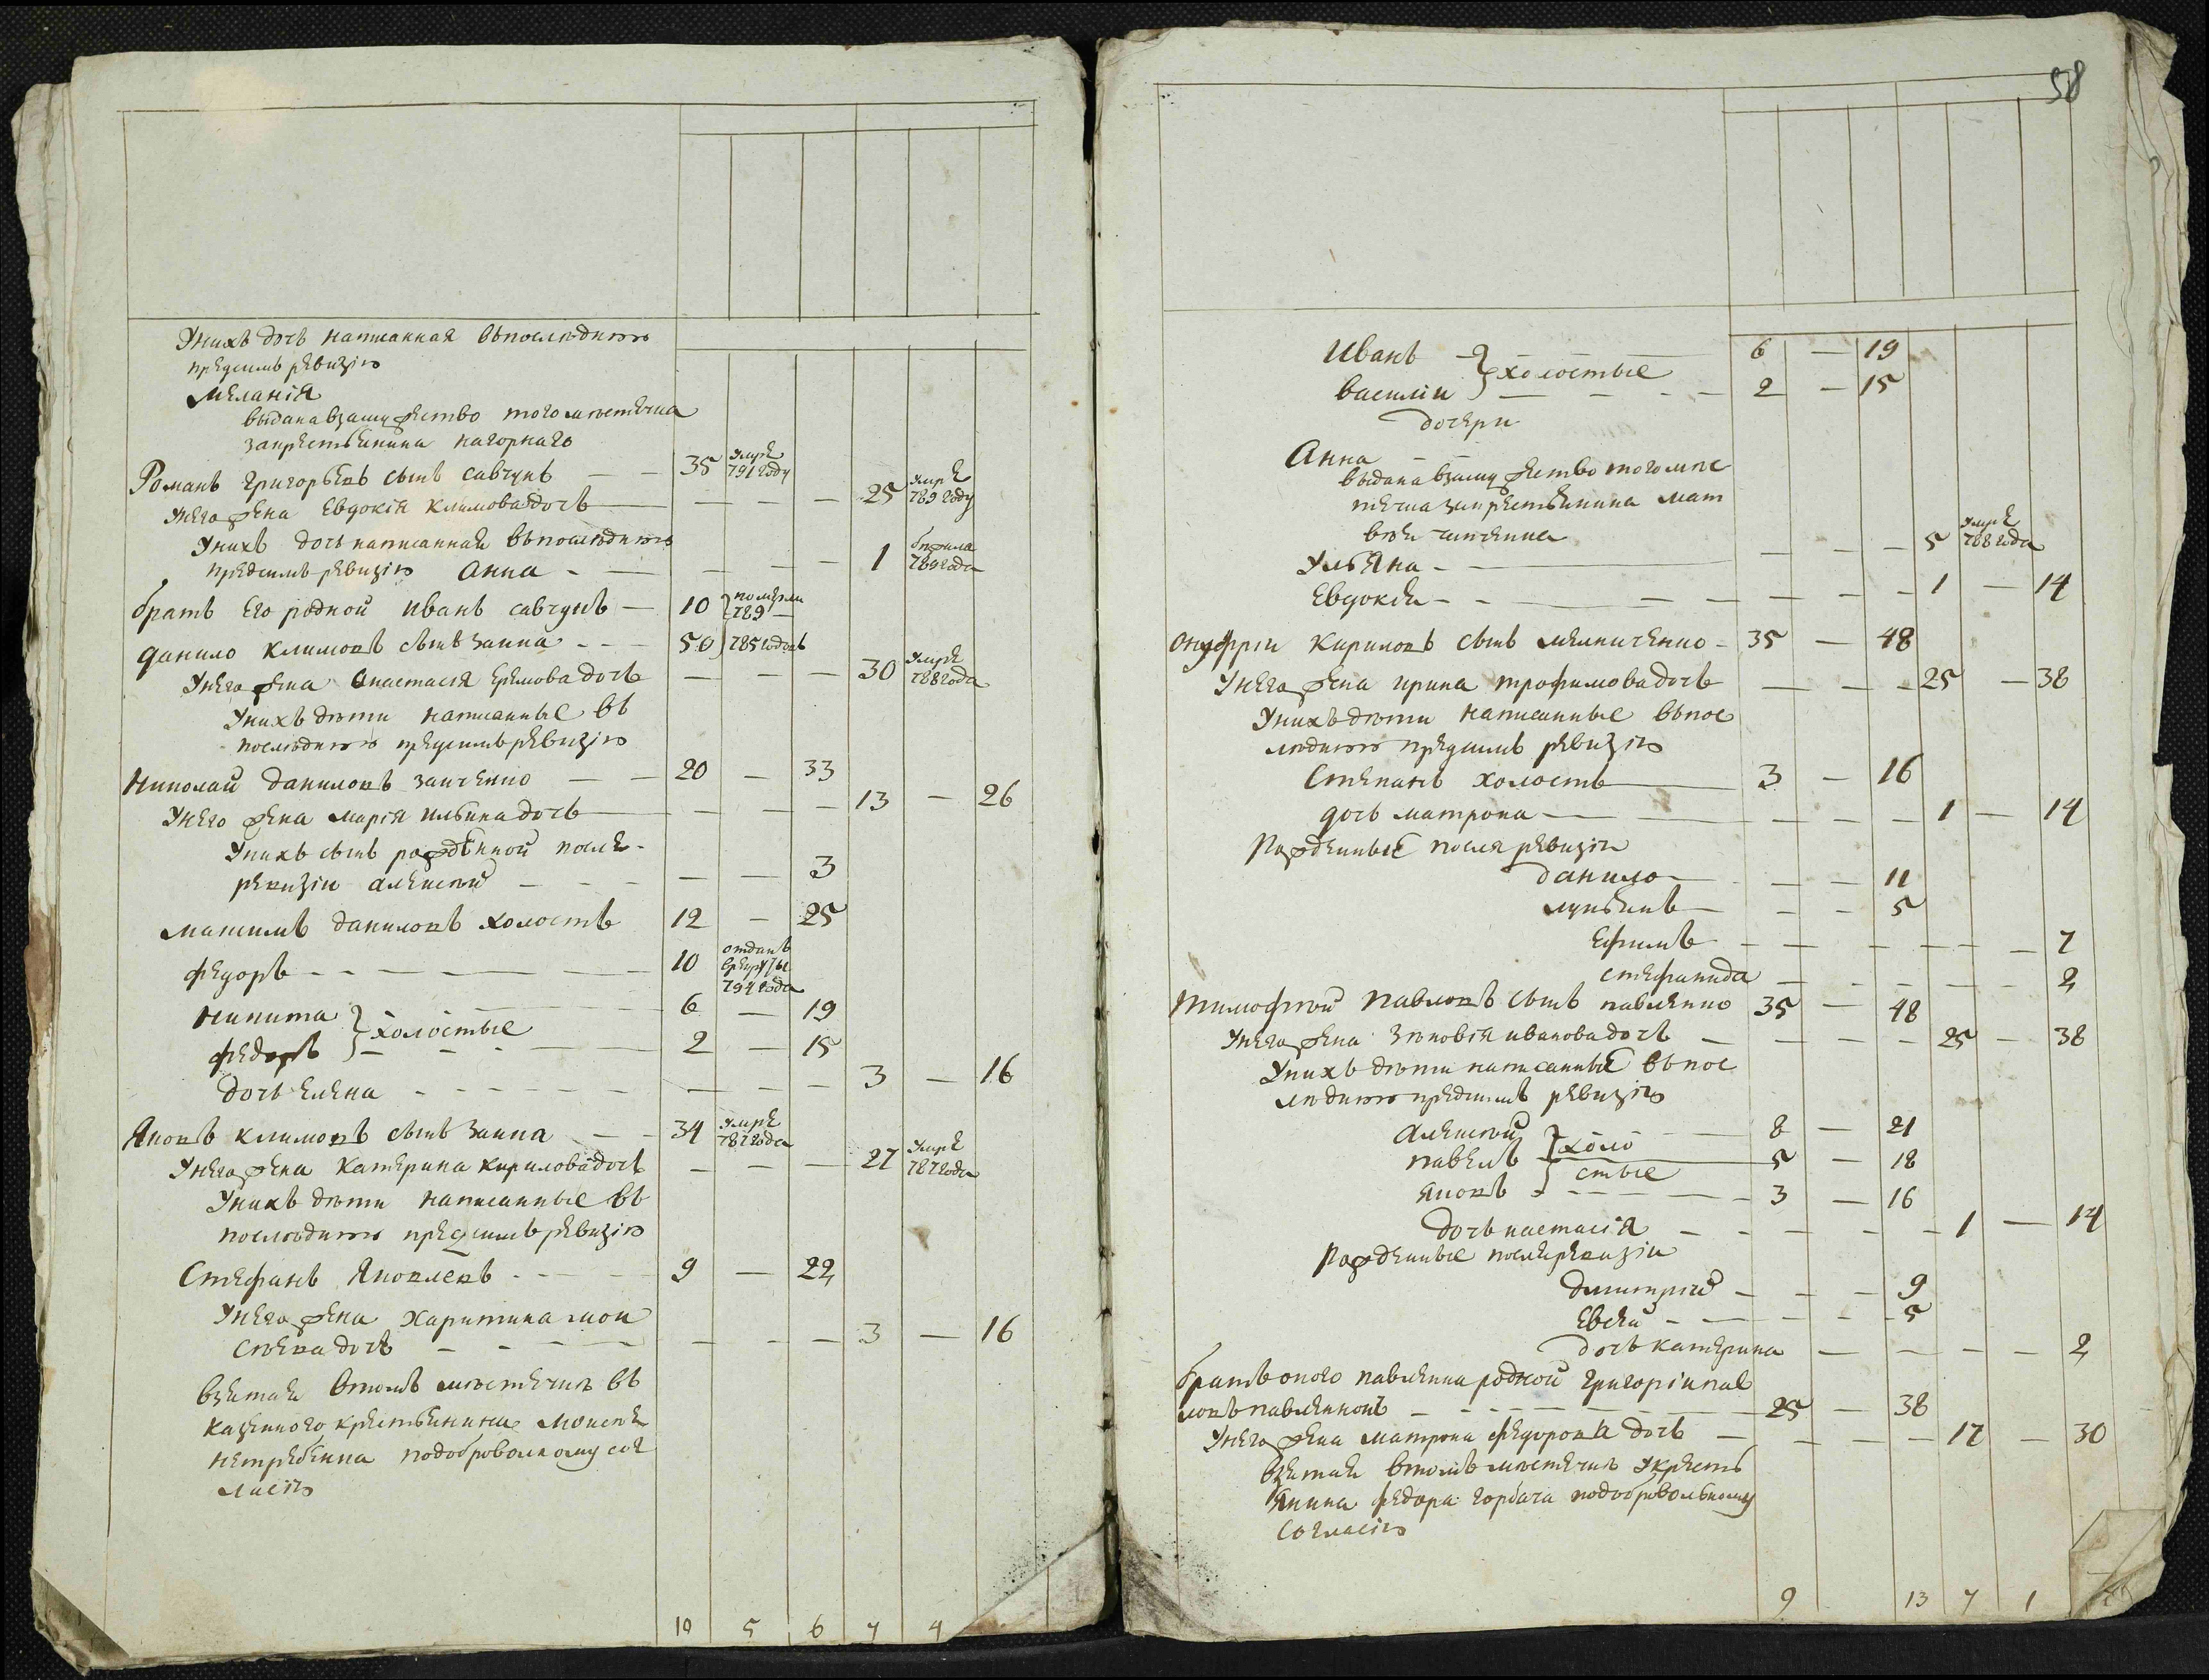 Унихъ дочь написанная впослѣднюю
предсимъ ревизію
Меланія
выдана взамужество того местечка
закрестьянина нагорнаго
Романъ Григорьевъ сынъ савчукъ — — 35 умре 791 году
Унего жена Евдокія климова дочь — — — — 25 умре 789 году
Унихъ дочь написанная впослѣднюю
предсимъ ревизію анна - — — — — 1 бежала 789 года
братъ Его родной иванъ савчукъ — 10 померли 789 —
данило климовъ сынъ заика - - — 50 785 годовъ
Унего жена анастасія Еремова дочь — — — 30 умре 788 года
Унихъ дѣти написанные въ
послѣднюю предсимъ ревизію
николай даниловъ заиченко — — 20 — 33
Унего жена марія ильина дочь — — — — 13 — 26
Унихъ сынъ рожденной после-
ревизіи алексѣй — - - — — 3
максимъ даниловъ холостъ 12 — 25
федоръ - - — — — 10 отданъ врекруты 794 года
никита } холостые — 6 — 19
федоръ — - - — 2 — 15
дочь елена - - - - - — — — 3 — 16
Яковъ климовъ сынъ заика — - 34 умре 787 года
Унего жена катерина кирилова дочь — — — 27 умре 787 года
Унихъ дѣти написанные въ
послѣднюю предсимъ ревизію
Стефанъ Яковлевъ - - — - 9 — 22
Унего жена харитина мои
сѣева дочь — - - - — — — — 3 — 16
взятая втомъ мѣстечкѣ въ
казенного крестьянина моисея
нетребенка подобровольному сог
ласію
10 5 6 7 4
58
Иванъ } холостые 6 — 19
василіи — - - - — 2 — 15
дочери
Анна
выдана взамужество того мѣс
течка закрестьянина мат
вѣя
Ульяна - — — — — 5 умре 788 года
Евдокія - - — — — - - 1 — 14
онуфріи кириловъ сынъ мельниченко - 35 — 48
Унего жена ирина трофимова дочь — — - 25 — 38
Унихъ дѣти написанные впос
лѣднюю предсимъ ревизію
Степанъ холостъ — 3 — 16
дочь матрона — — — — — 1 — 14
Рожденные посля ревизіи
данило — - — — 11
лукьянъ — - - 5
Ефимъ — — - — - — 7
стефанида — - - - — 2
Тимофѣй Павловъ сынъ павленко 35 — 48
Унего жена зѣновія иванова дочь — — — — 25 — 38
Унихъ дѣти написанные впос
лѣднюю предсимъ ревизію
алексѣй } холо — 8 — 21
павелъ стые 5 — 18
яковъ - - - — — 3 — 16
дочь настасія — — - - - 1 — 14
Рожденные после ревизіи
дмитріи — - — — 9
Евсей — - — - — 5
дочь катерина — — — — 2
братъ оного павленка родной григоріи пав
ловъ павленковъ — - - - — 25 — 38
Унего жена матрона федорова дочь — — — - — 17 — 30
взятая втомъ мѣстечкѣ укресть
янина федора горбача подобровольному
согласію
9 13 7 1